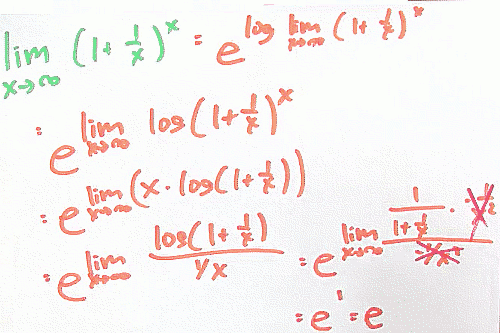 lim x→∞ (1+1/x)^x = e^(log lim x→∞ (1+1/x)^x)
= e^(lim x→∞ log(1+1/x)^x)
= e^(lim x→∞ (x·log(1+1/x)))
= e^(lim x→∞ log(1+1/x) / 1/x) = e^(lim x→∞ 1/(1+1/x) ·
= e^1 = e